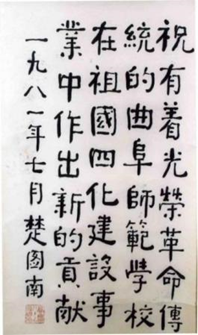 祝有着光榮革命傳
統的曲阜師範學校
在祖國四化建設事
業中作出新的貢献
一九八一年七月楚图南